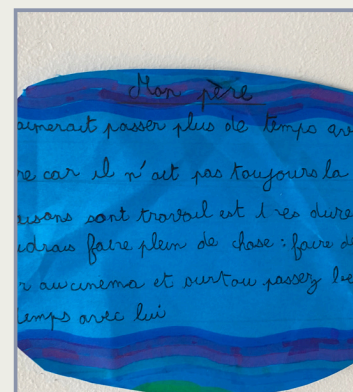 Mon père
aimerait passer plus de temps ave
re car il n'ait pas toujours la
aisons sont travail est tres dures
udrais faire plein de chose : faire de
r au cinema et surtou passez le
temps avec lui